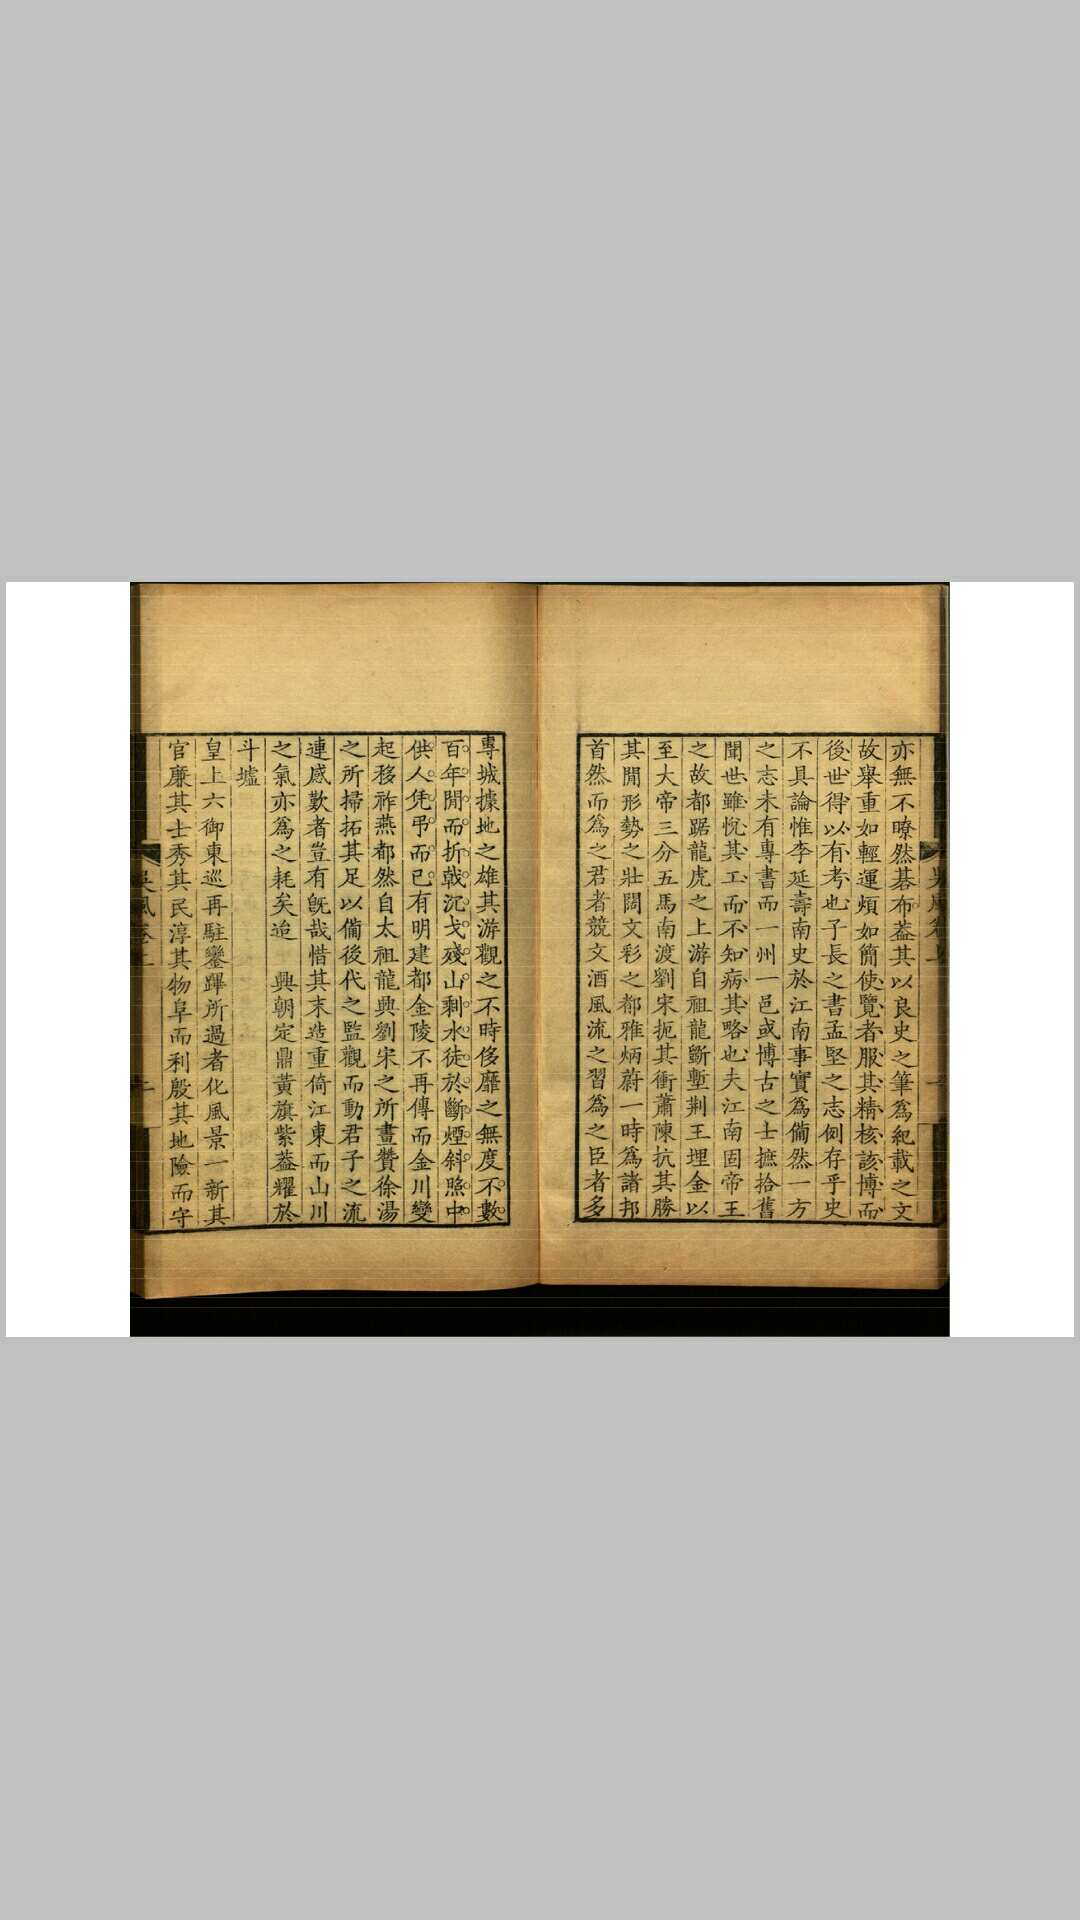 亦無不瞭然碁布葢其以良史之筆爲紀載之文
故舉重如輕運煩如簡使覽者服其精核該博而
後世得以有考也子長之書孟堅之志例存乎史
不具論惟李延壽南史於江南事實爲僃然一方
之志未有專書而一州一邑或博古之士摭拾舊
聞世雖悅其工而不知病其略也夫江南固帝王
之故都踞龍虎之上游自祖龍斷塹荆王埋金以
至大帝三分五馬南渡劉宋扼其衝蕭陳抗其勝
其閒形勢之壯闊文彩之都雅炳蔚一時爲諸邦
首然而爲之君者競文酒風流之習爲之臣者多
專城據地之雄其游觀之不時侈靡之無度不數
百年閒而折戟沉戈殘山剩水徒於斷煙斜照中
供人凭弔而已有明建都金陵不再傳而金川變
起移祚燕都然自太祖龍興劉宋之所畫贊徐湯
之所掃拓其足以僃後代之監觀而動君子之流
連感歎者豈有旣哉惜其末造重倚江東而山川
之氣亦爲之耗矣迨 興朝定鼎黃旗紫葢耀於
斗墟
皇上六御東巡再駐鑾蹕所過者化風景一新其
官廉其士秀其民淳其物阜而利殷其地險而守